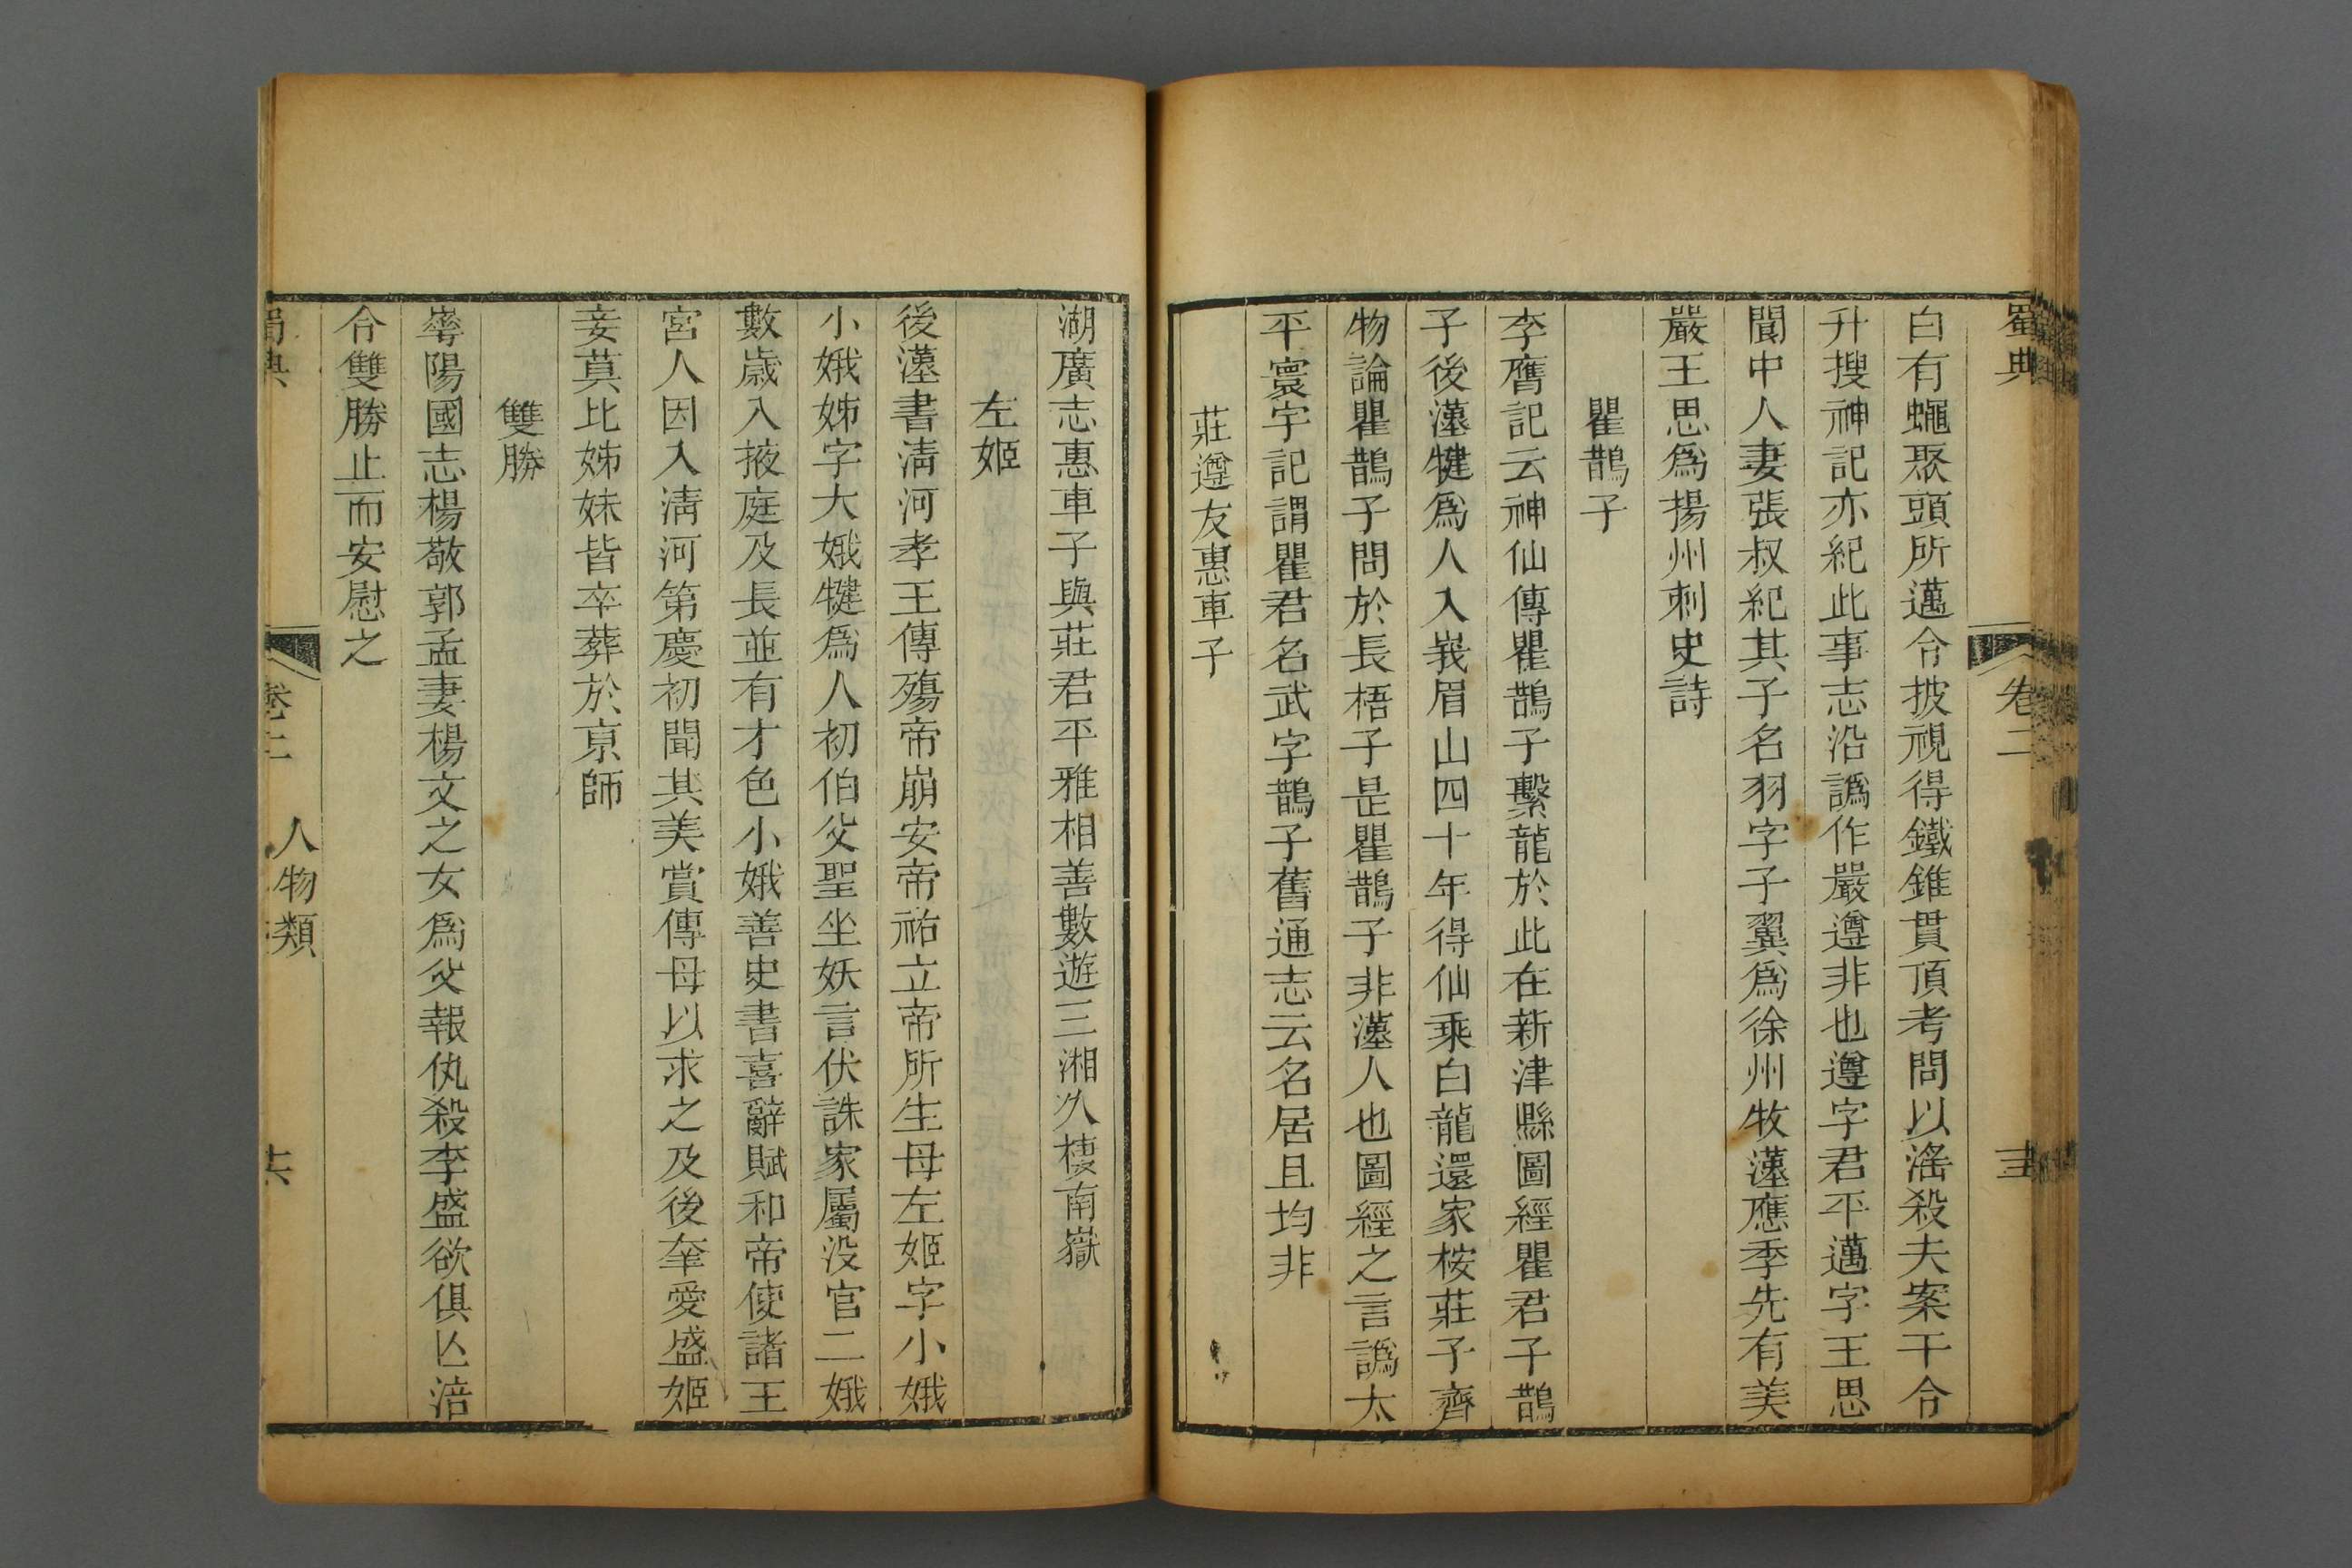 蜀典
卷二
白有蠅聚頭所邁令披視得鐵錐貫頂考問以滛殺夫案干令
升搜神記亦紀此事志沿譌作嚴遵非也遵字君平邁字王思
聞中人妻張叔紀其子名羽字子翼爲徐州牧漢應季先有美
嚴王思爲揚州刺史詩
瞿鵲子
李膺記云神仙傳瞿鵲子繫龍於此在新津縣圖經瞿君子鵲
子後漢犍爲人入峩眉山四十年得仙乘白龍還家桉莊子齊
物論瞿鵲子問於長梧子是瞿鵲子非漢人也圖經之言譌太
平寰宇記謂瞿君名武字鵲子舊通志云名居且均非
莊遵友惠車子
湖廣志惠車子與莊君平雅相善數遊三湘久棲南嶽
左姬
後漢書淸河孝王傳殤帝崩安帝祐立帝所生母左姬字小娥
小娥姊字大娥犍爲人初伯父聖坐妖言伏誅家屬没官二娥
數歲入掖庭及長並有才色小娥善史書喜辭賦和帝使諸王
宮人因入淸河第慶初聞其美賞傅母以求之及後幸愛盛姬
妾莫比姊妹皆卒葬於京師
雙勝
華陽國志楊敬郭孟妻楊文之女爲父報仇殺李盛欲俱亾涪
令雙勝止而安慰之
蜀典
卷二
人物類